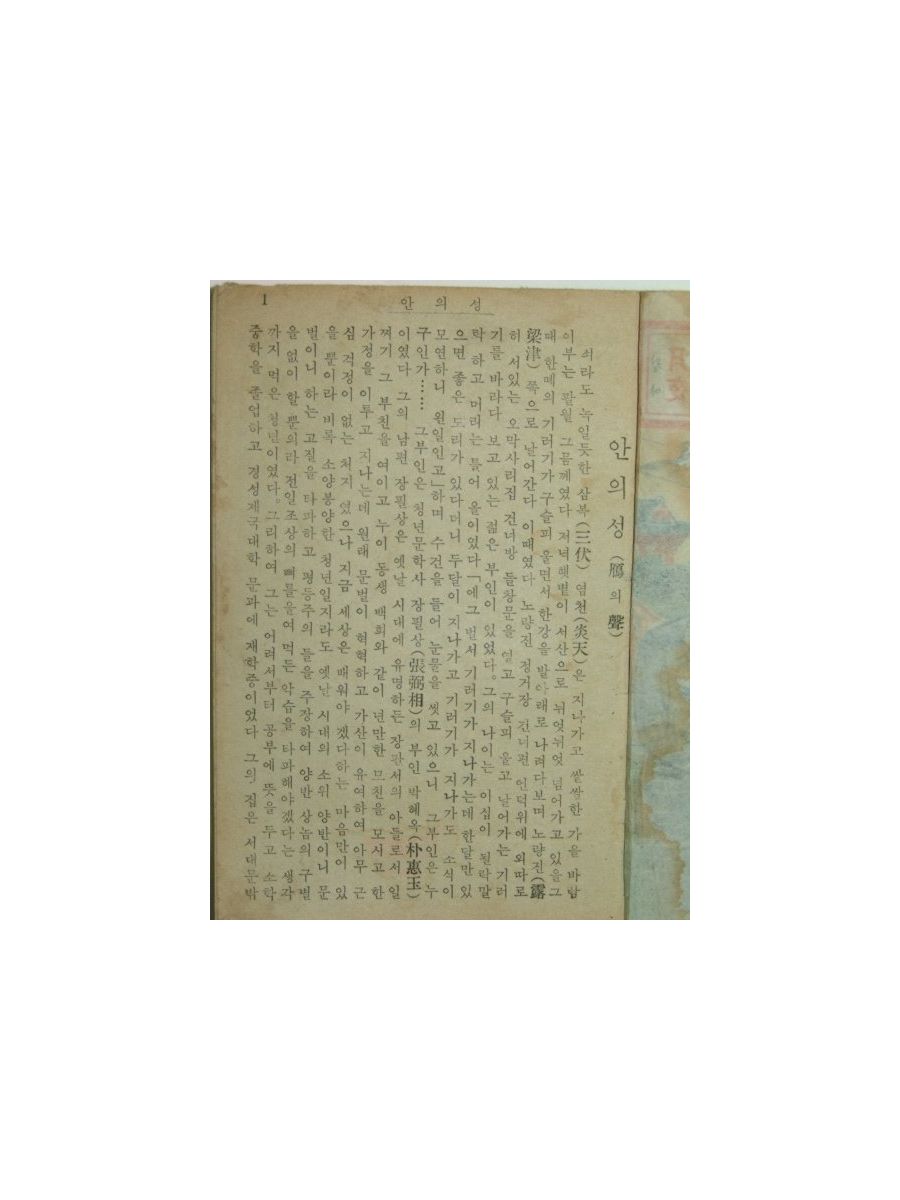 1
안 의 성
안 의 성 (鴈 의 聲)
쇠라도 녹일듯한 삼복(三伏) 염천(炎天)은 지나가고 쌀쌀한 가을 바람
이부는 팔월 그믐께였다 저녁햇볕이 서산으로 뉘엿뉘엿 넘어가고 있을그
때 한떼의 기러기가구슬피 울면서 한강을 발아래로 나려다보며 노량진(露
梁津) 쪽으로 날어간다 이때였다 노량진 정거장 건너편 언덕위에 외따로
히 서있는 오막사리집 건너방 들창문을 열고 구슬피 울고 날어가는 기러
기를 바라다 보고 있는 젊은 부인이 있었다。그의 나이는 이십이 될락말
락 하고 머리는 틀어 올이였다「에그 벌서 기러기가 지나가는데 한달만 있
으면 좋은 도리가 있다더니 두달이 지나가고 기러기가 지나가도 소식이
모연하니 왼일인고」하며 수건을 들어 눈물을 씻고 있으니 그부인은 누
구인가…… 그부인은 청년문학사 장필상(張弼相)의 부인 박혜옥(朴惠玉)
이였다 그의 남편 장필상은 옛날 시대에 유명하든 장판서의 아들로서 일
찌기 그 부친을 여이고 누이 동생 백희와 같이 년만한 모친을 모시고 한
가정을 이루고 지나는데 원래 문벌이 혁혁하고 가산이 유여하여 아무 근
심 걱정이 없는 처지 였으나 지금 세상은 배워야 겠다하는 마음만이 있
을 뿐이라 비록 소양봉양한 청년일지라도 옛날 시대의 소위 양반이니 문
벌이니 하는 고질을 타파하고 평등주의 들을 주장하여 양반 상놈의 구별
을 없이 할 뿐의라 전일조상의 뼈를울여 먹든 악습을 타파해야겠다는 생각
까지 먹은 청년이였다。그리하여 그는 어려서부터 공부에 뜻을 두고 소학
중학을 졸업하고 경성제국대학 문과에 재학중이였다 그의 집은 서대문밖